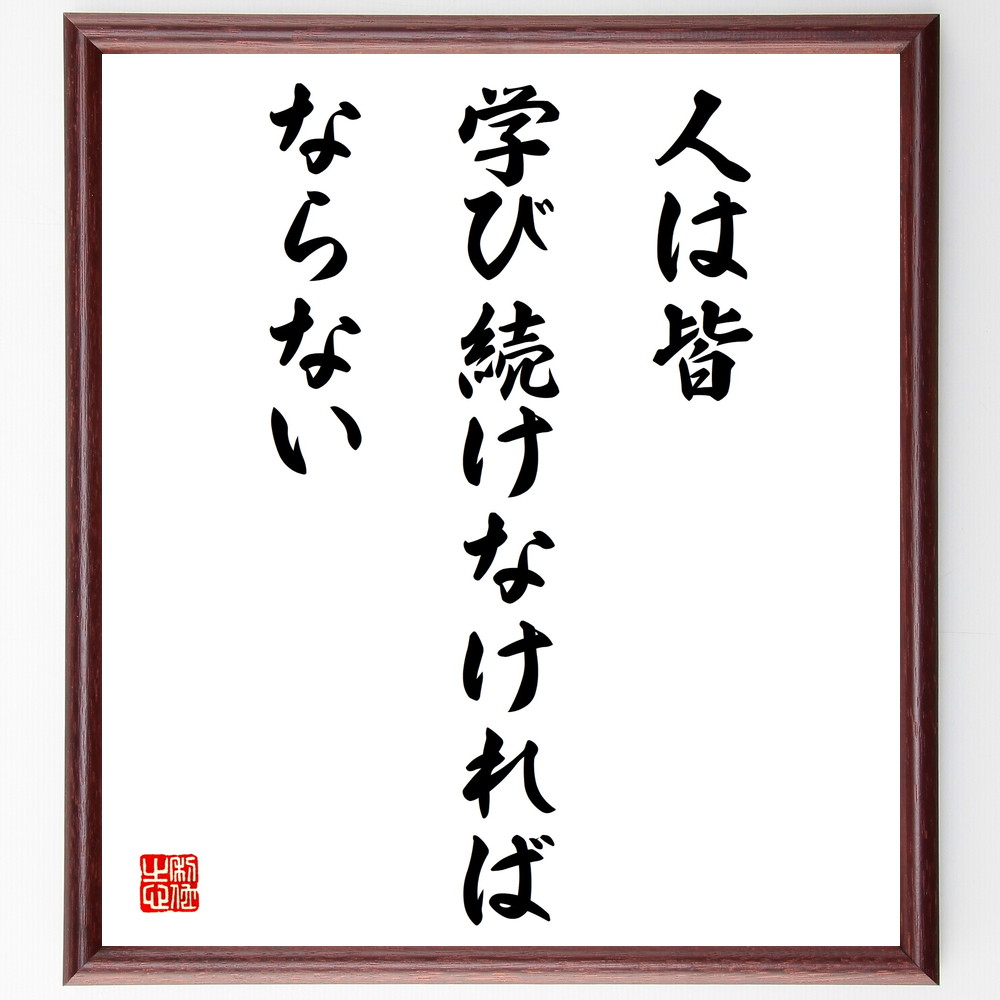 人は皆
学び続けなければ
ならない